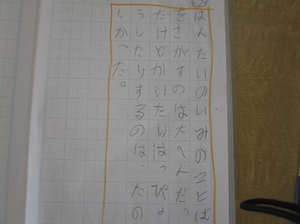 はんたいのいみのことば
をさがすのは大へんだっ
たけどかいたりはっぴょ
うしたりするのは、たの
しかった。